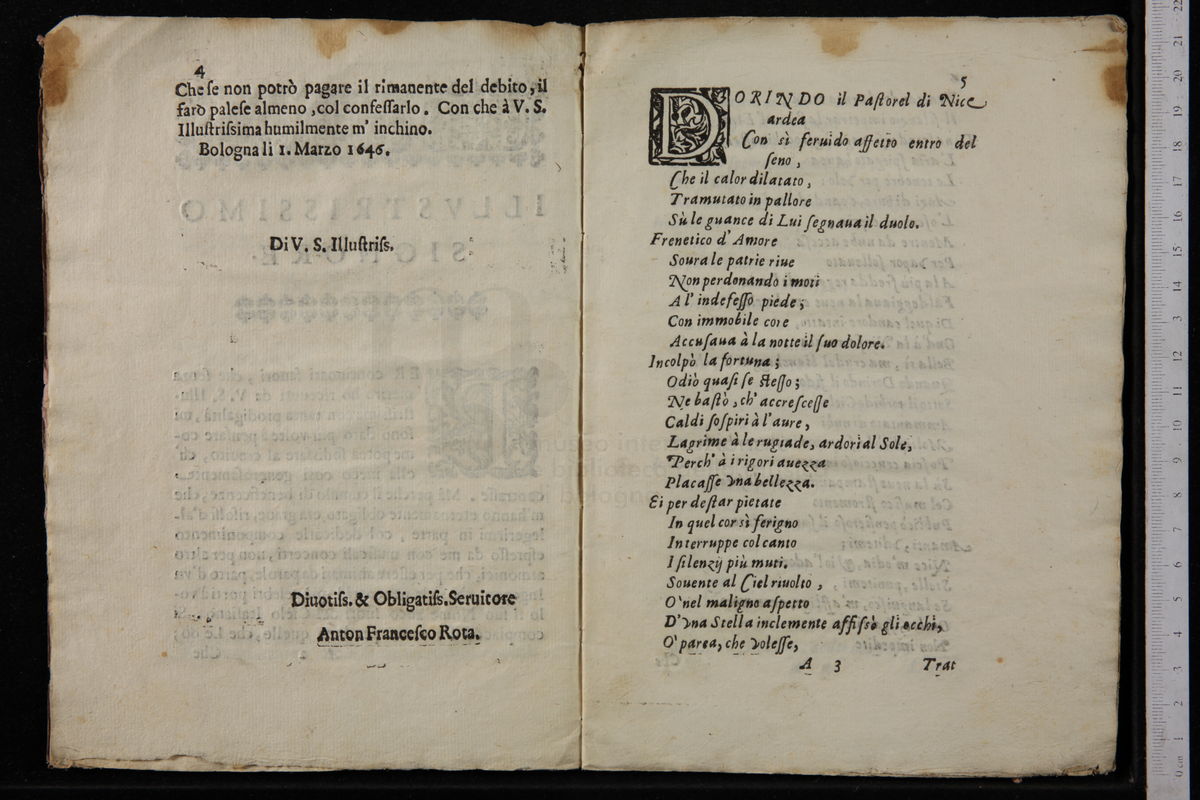 4
Che se non potrò pagare il rimanente del debito, il
farò palese almeno, col confessarlo. Con che à V. S.
Illustrissima humilmente m' inchino.
Bologna li 1. Marzo 1646.
Di V. S. Illustriss.
Diuotiss. & Obligatiss. Seruitore
Anton Francesco Rota.
5
DORINDO il Pastorel di Nice
ardea
Con sì feruido affetto entro del
seno,
Che il calor dilatato,
Tramutato in pallore
Sù le guance di Lui segnaua il duolo.
Frenetico d' Amore
Soura le patrie riue
Non perdonando i moti
A l' indefesso piede;
Con immobile core
Accusaua à la notte il suo dolore.
Incolpò la fortuna;
Odiò quasi se stesso;
Ne bastò, ch' accrescesse
Caldi sospiri à l' aure,
Lagrime à le rugiade, ardori al Sole,
Perch' à i rigori auezza
Placasse vna bellezza.
Ei per destar pietate
In quel cor sì ferigno
Interruppe col canto
I silenzij più muti.
Souente al Ciel riuolto,
O' nel maligno aspetto
D' vna Stella inclemente affissò gli occhi,
O' parea, che volesse,
A 3
Trat